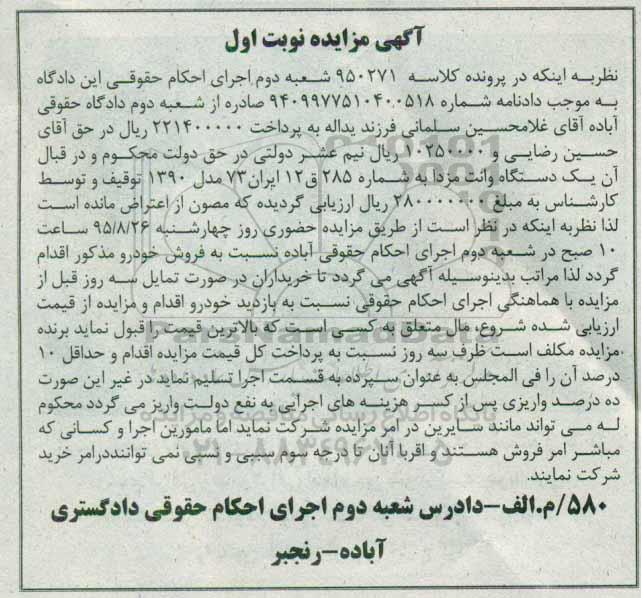 آگهی مزایده نوبت اول
نظربه اینکه در پرونده کلاسه ۹۵۰۲۷۱ شعبه دوم اجرای احکام حقوقی این دادگاه
به موجب دادنامه شماره ۹۴۰۹۹۷۷۵۱۰۴۰۰۵۱۸ صادره از شعبه دوم دادگاه حقوقی
آباده آقای غلامحسین سلمانی فرزند یداله به پرداخت ۲۲۱۴۰۰۰۰۰ ریال در حق آقای
حسین رضایی و ۱۰۲۵۰۰۰۰ ریال نیم عشر دولتی در حق دولت محکوم و در قبال
آن یک دستگاه وانت مزدا به شماره ۲۸۵ ق۱۲ ایران۷۳ مدل ۱۳۹۰ توقیف و توسط
کارشناس به مبلغ ۲۸۰۰۰۰۰۰۰ ریال ارزیابی گردیده که مصون از اعتراض مانده است
لذا نظربه اینکه در نظر است از طریق مزایده حضوری روز چهارشنبه ۹۵/۸/۲۶ ساعت
۱۰ صبح در شعبه دوم اجرای احکام حقوقی آباده نسبت به فروش خودرو مذکور اقدام
گردد لذا مراتب بدینوسیله آگهی می گردد تا خریداران در صورت تمایل سه روز قبل از
مزایده با هماهنگی اجرای احکام حقوقی نسبت به بازدید خودرو اقدام و مزایده از قیمت
ارزیابی شده شروع، مال متعلق به کسی است که بالاترین قیمت را قبول نماید برنده
مزایده مکلف است ظرف سه روز نسبت به پرداخت کل قیمت مزایده اقدام و حداقل ۱۰
درصد آن را فی المجلس به عنوان سپرده به قسمت اجرا تسلیم نماید در غیر این صورت
ده درصد واریزی پس از کسر هزینه های اجرایی به نفع دولت واریز می گردد محکوم
له می تواند مانند سایرین در امر مزایده شرکت نماید اما مامورین اجرا و کسانی که
مباشر امر فروش هستند و اقربا آنان تا درجه سوم سببی و نسبی نمی تواننددرامر خرید
شرکت نمایند.
۵۸۰/م.الف-دادرس شعبه دوم اجرای احکام حقوقی دادگستری
آباده-رنجبر